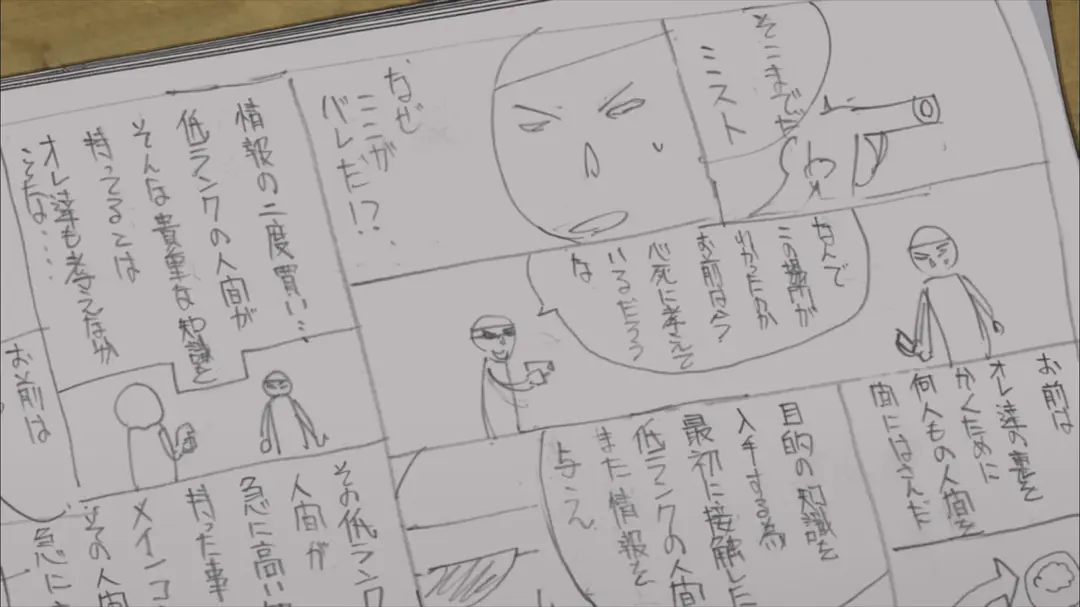 そこまでだ
ミニスト
なぜ
ここが
バレだ!?
情報の二度買い…
低ランクの人間が
そんな貴重な知識を
持ってるとは
オレ達も考えなか
なんで
この場所が
わかったのか
お前は今
必死に考えて
いるだろう
な
お前は
オレ達の裏を
かくために
何人もの人間を
間にはさんだ
目的の知識を
入手する為
最初に接触した
低ランクの人間
また情報を
与え
お前は
その低ランク
人間が
急に高い
持った事
メインコ
その人間
急に